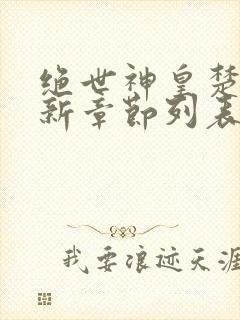 绝世神皇楚
新章節列表
我要浪迹天涯